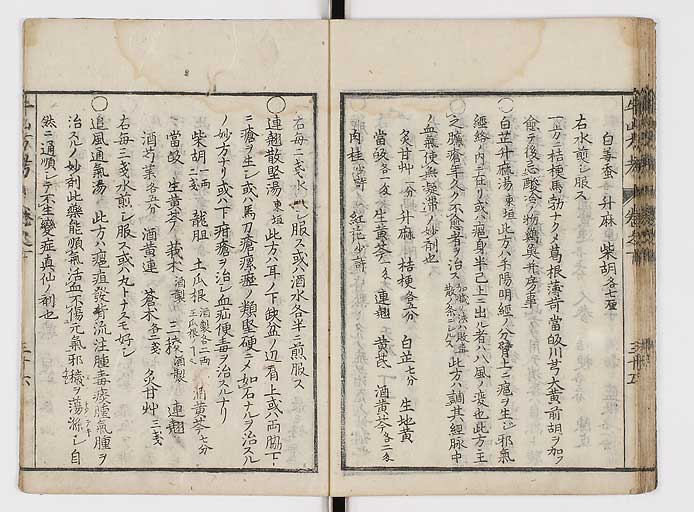 白姜蚕 升麻 柴胡各七厘
右水煎シ服ス
一方ニ桔梗馬勃ナクメ葛根薄荷當皈川芎大黄前胡ヲ加フ
愈テ後忌酸冷ノ物鶏臭并房事
〇白芷升麻湯東垣 此方ハ手陽明経ノ分臂上ニ瘡ヲ生シ邪氣
経絡ノ内ニ在リ或ハ瘡身半已上ニ出ル者ハ八風ノ変也此方ハ王
之臁瘡年久ノ不愈者ヲ治ス 此方ハ調其経脉中
ノ血氣使無凝滞ノ妙剤也
炙甘艸一分 升麻 桔梗各五分 白芷七分 生地黄
當皈各一戔 生黄芩 連翹 黄芪 酒黄芩各二戔
肉桂少許 紅花少許
右毎二戔水ニ煎シ服ス或ハ酒水各半ニ煎服ス
〇連翹散堅湯東垣 此方ハ耳ノ下缺盆ノ辺肩上或ハ両脇下
ニ瘡ヲ生シ或ハ馬刀瘡瘰癧ノ類堅硬ニメ如石ナルヲ治スル
ノ妙方ナリ或ハ下疳瘡ヲ治シ血疝便毒ヲ治スルナリ
柴胡一両二戔 龍胆 土瓜根酒製各一両 酒黄芩七分
當皈 生黄芩 莪朮 三稜酒製 連翹
酒芍薬各五分 酒黄連 蒼朮各三戔 炙甘艸三戔
右毎三戔水煎シ服ス或ハ丸トナスモ好シ
〇追風通氣湯 此方ハ瘡疽發背流注腫毒痰腫氣腫ヲ
治スルノ妙剤此藥能順氣活血不傷元氣邪穢ヲ蕩滌シ自
然ニ通順シテ不生變症真仙ノ剤也